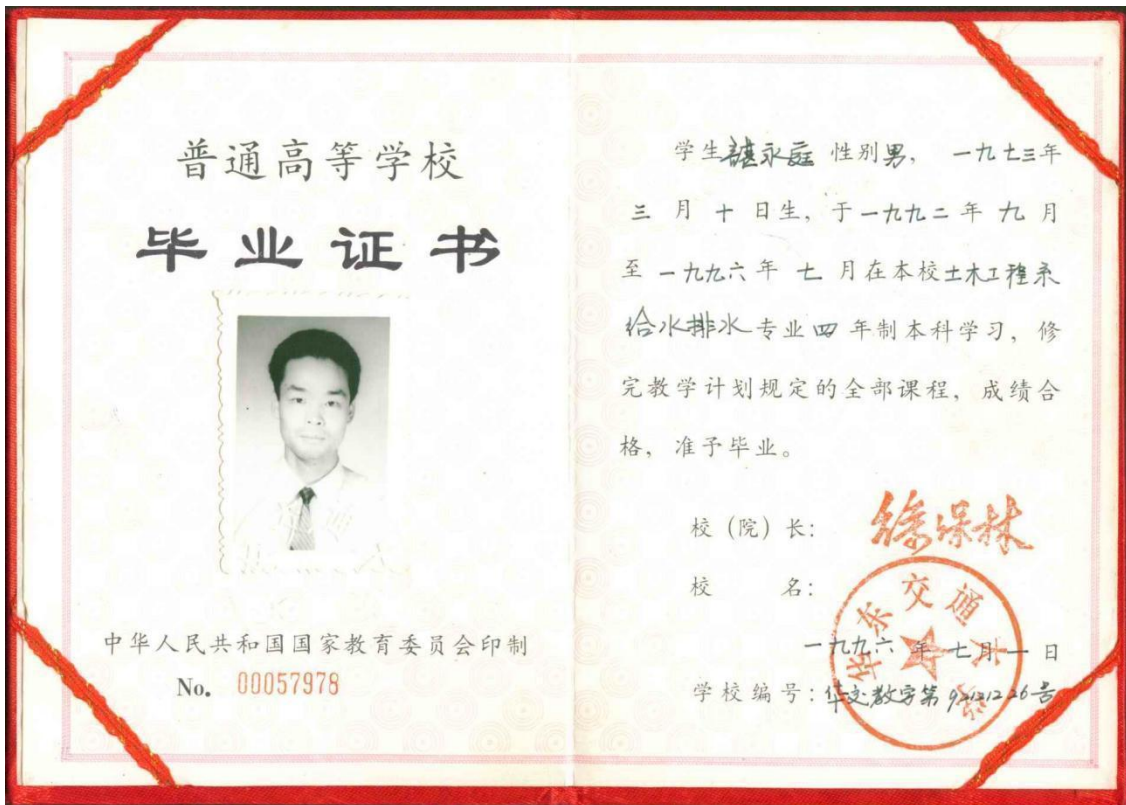 普通高等学校
毕业证书
中华人民共和国国家教育委员会印制
No. 00057978
学生 永庭 性别男， 一九七三年
三月十日生，于一九九二年九月
至一九九六年七月在本校土木工程系
给水排水专业四年制本科学习，修
完教学计划规定的全部课程，成绩合
格，准予毕业。
校（院）长：徐保林
校 名：
华东交通大学
一九九六年七月一日
学校编号：华交教字第 号